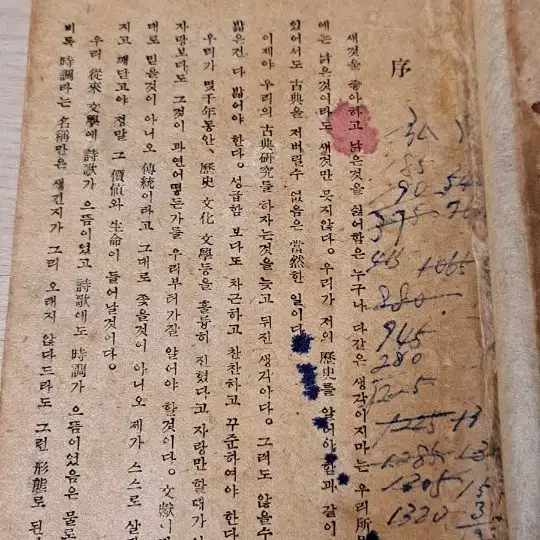 序
새것을 좋아하고 낡은것을 싫어함은 누구나 다같은 생각이지마는 우리所
에는 낡은것이라도 새것만 못지않다。우리가 저의 歷史를 알어야 함과 같이
있어서도 古典을 저버릴수 없음은 當然한 일이다
이제야 우리의 古典硏究를 하자는것을 늦고 뒤진 생각이다。그래도 않을수
밟은건 다 밟어야 한다。성급함 보다도 차근하고 찬찬하고 꾸준하여야 한다
우리가 몇千年동안、歷史 文化 文學등을 훌륭히 진혔다고 자랑만 할때가
자랑보다도 그것이 과연어떻든가를 우리부터가잘 알어야 할것이다。文獻이
대로 믿을것이 아니오 傳統이라고 그대로 좇을것이 아니오 제가 스스로 살
지고 깨닫고야 정말 그 價値와 生命이 들어날것이다。
우리 從來 文學에 詩歌가 으뜸이었고 詩歌에도 時調가 으뜸이었음은 물로
비록 時調라는 名稱만은 생긴지가 그리 오래지 않다드라도 그런 形態로 된
85
90 54
375
1065
280
945
280
1225
1285
1205 15
1320 3